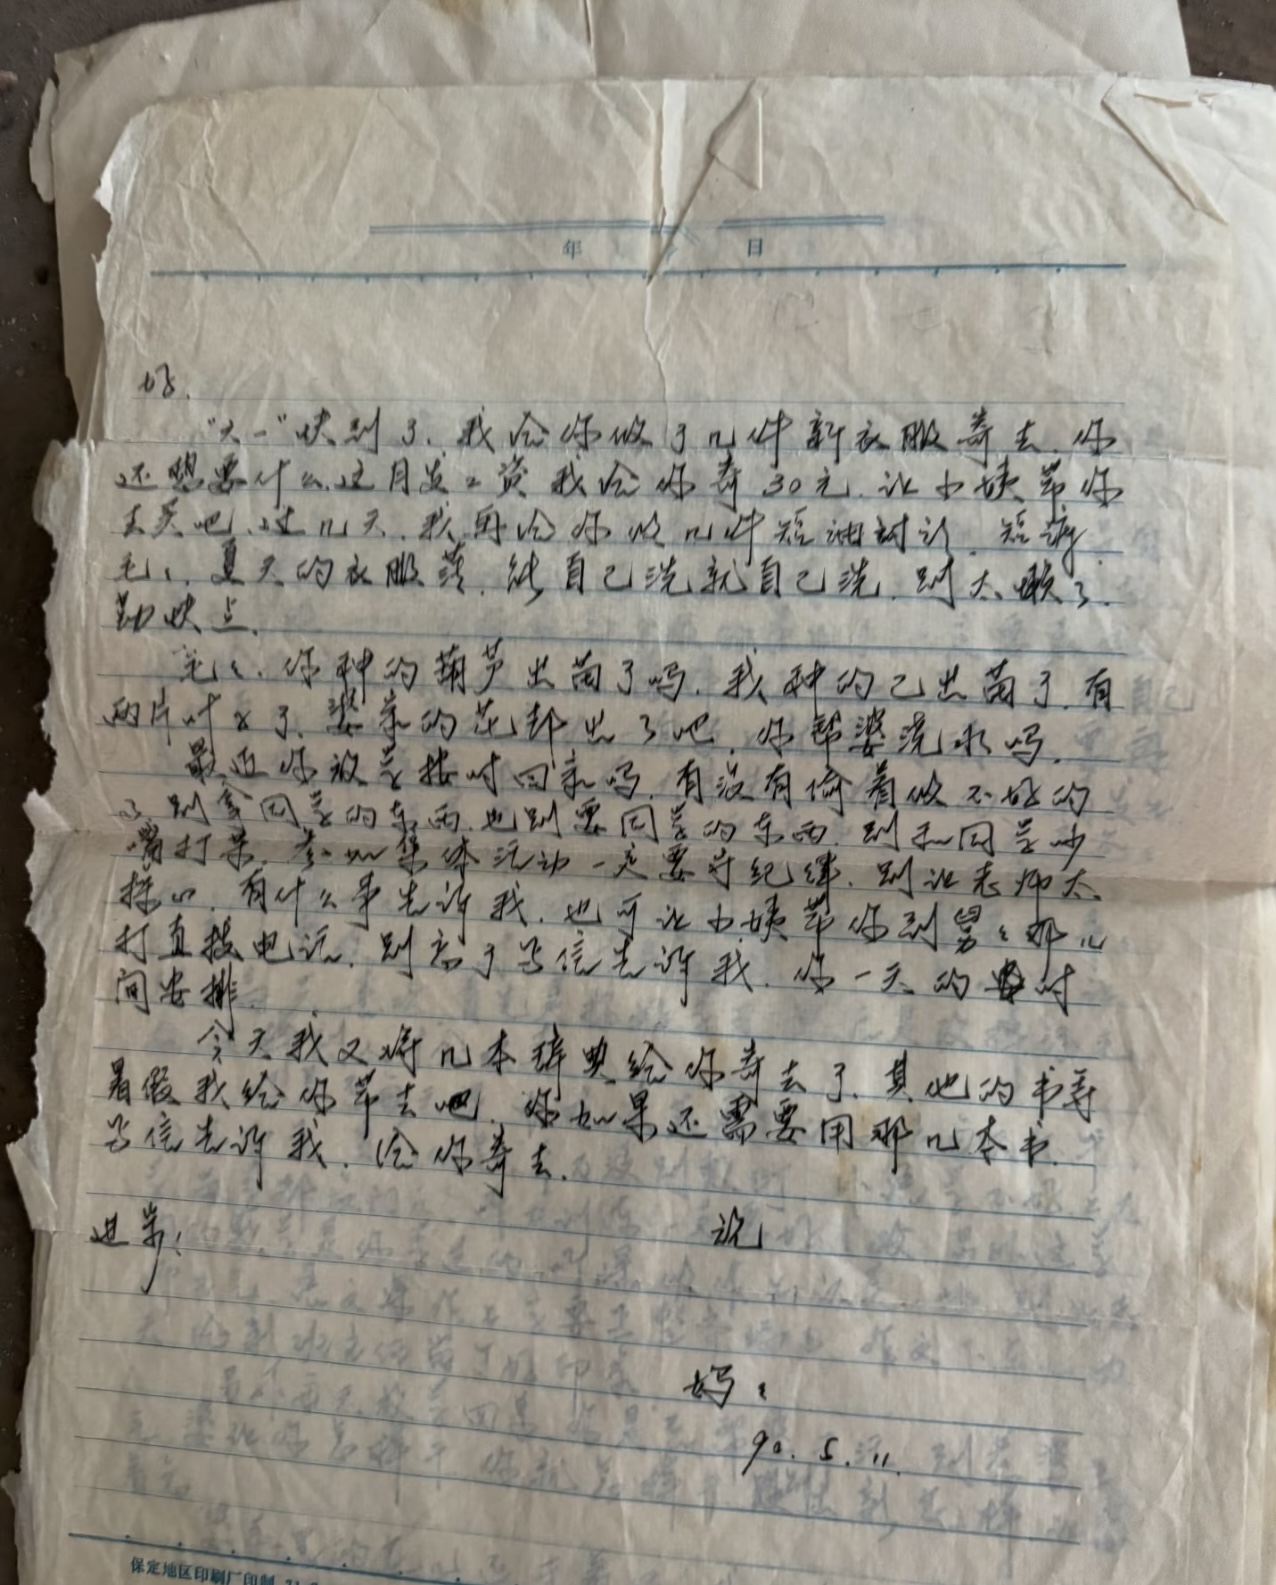 年 日
好.
"六一"快到了、我给你做了几件新衣服寄去.你
还想要什么.这月发工资我给你寄30元.让小姨带你
去买吧.过几天.我再给你做几件短袖衬衫.短裤.
毛毛.夏天的衣服薄.能自己洗就自己洗.别太懒了.
勤快点.
毛毛、你种的葫芦出苗了吗.我种的已出苗了.有
两片叶子了.婆家的花都出了吧.你帮婆浇水吗.
最近你放学按时回家吗.有没有偷着做不好的
别拿同学的东西.也别要同学的东西.别和同学吵
嘴打架.参加集体活动一定要守纪律.别让老师太
操心.有什么事告诉我.也可让小姨带你到舅舅那儿
打直拨电话.别忘了写信告诉我.你一天的时
间安排.
今天我又将几本辞典给你寄去了.其他的书等
暑假我给你带去吧.你如果还需要用哪几本书.
写信告诉我.给你寄去.
祝
进步!
妈妈
90.5.11.
保定地区印刷厂印制